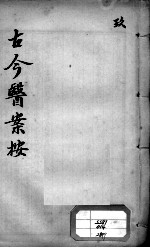 玖
古今醫案按